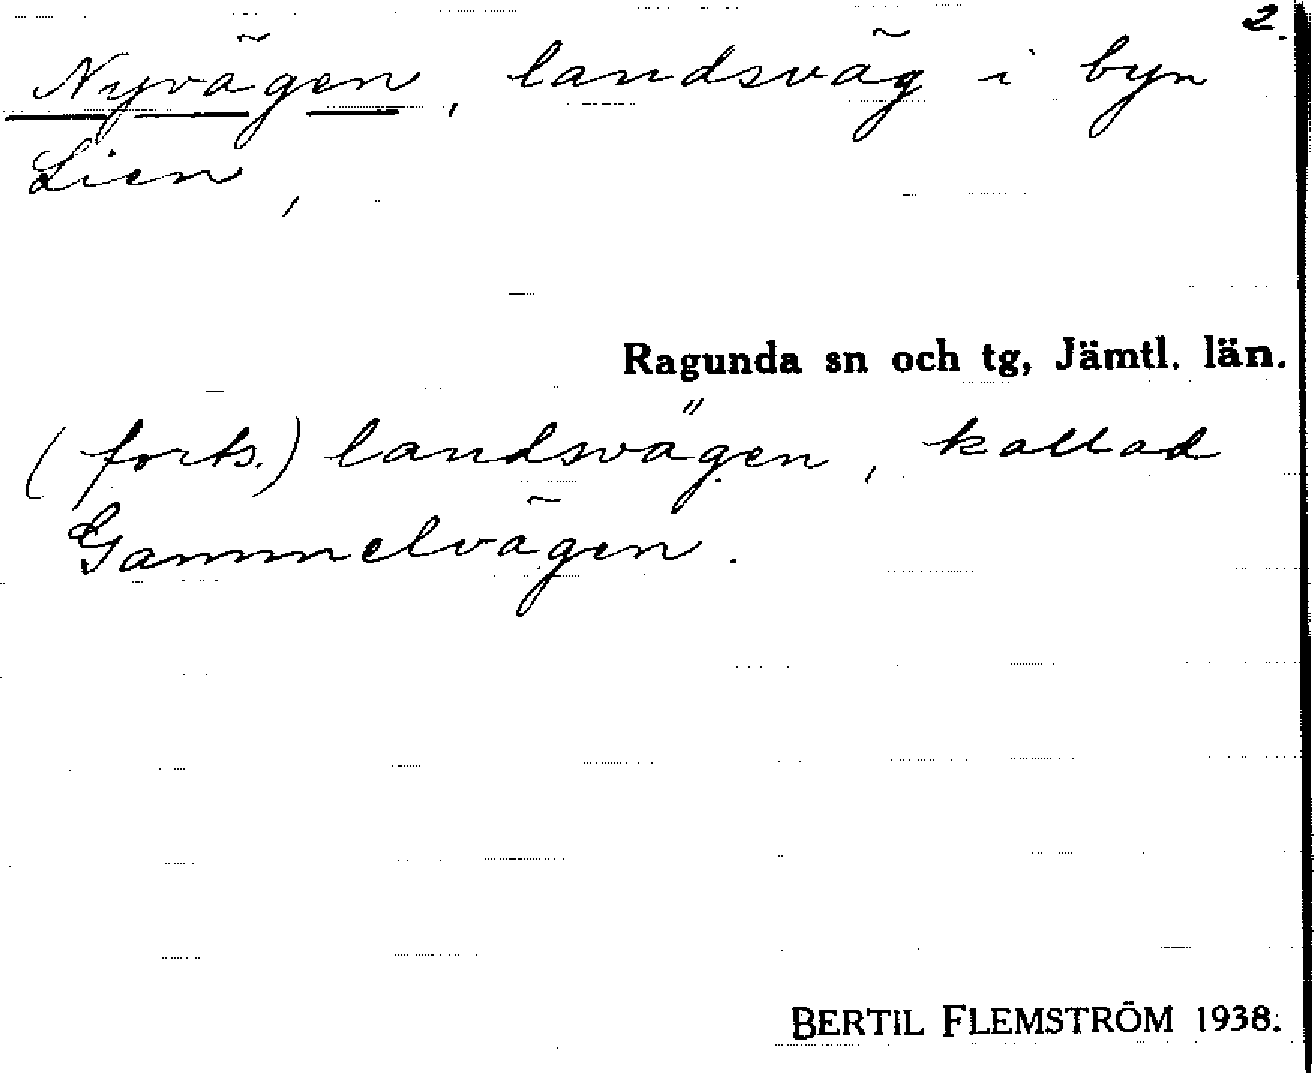 2.
Nyvägen, landsväg i byn
Lien,
Ragunda sn och tg, Jämtl. län.
(forts.) landsvägen, kallad
Gammelvägen.
BERTIL FLEMSTRÖM 1938.